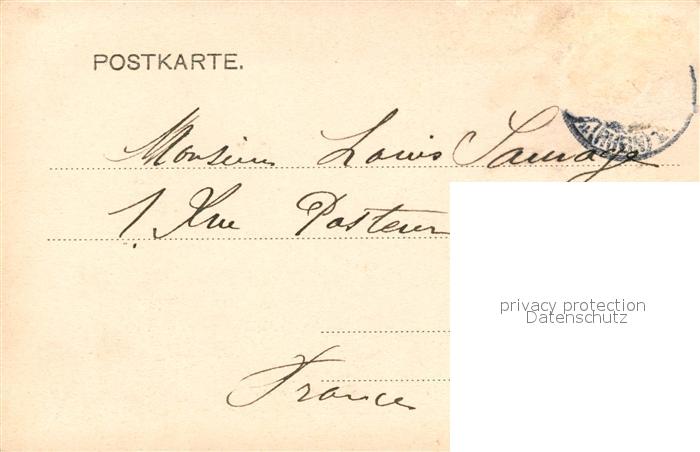 POSTKARTE.
Monsieur Louis Sauvage
1. Rue Pasteur
privacy protection
Datenschutz
France